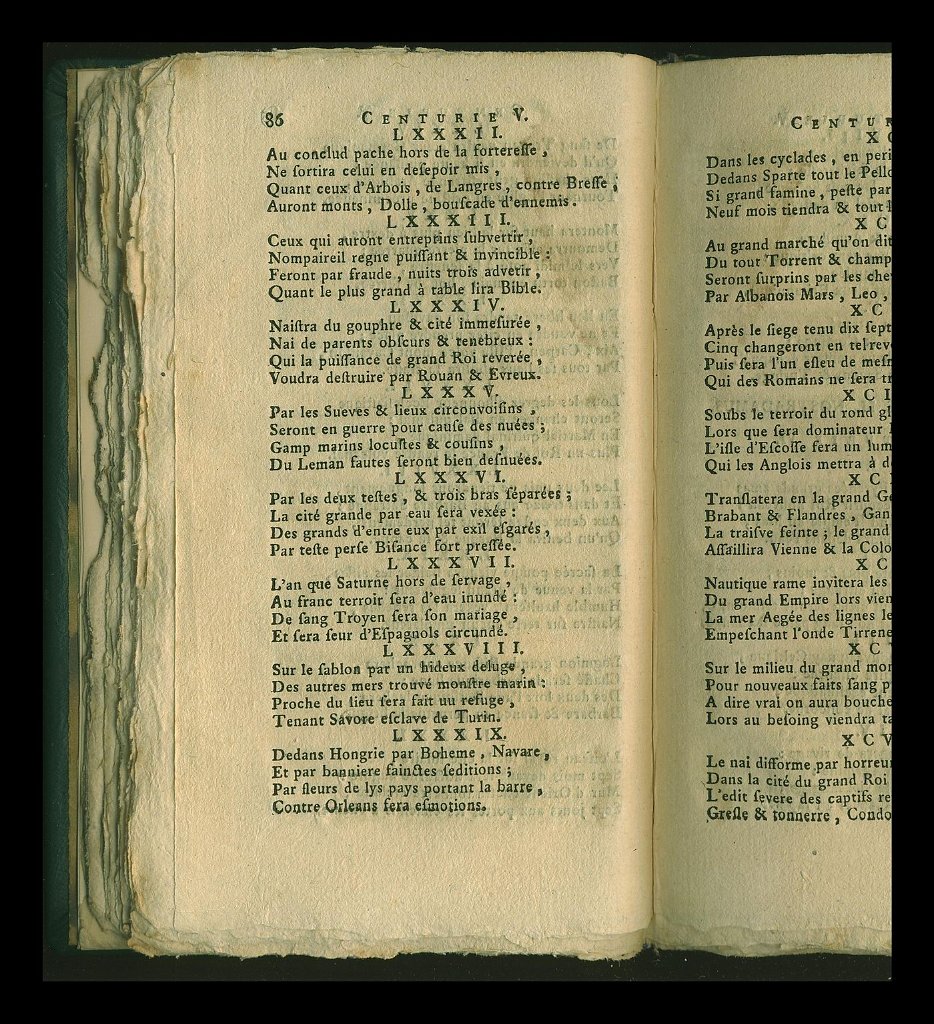 86 CENTURIE V.
LXXXII.
Au conclud pache hors de la fortereſſe ,
Ne ſortira celui en deſepoir mis ,
Quant ceux d'Arbois , de Langres , contre Breſſe ,
Auront monts , Dolle , bouſcade d'ennemis.
LXXXIII.
Ceux qui auront entreprins ſubvertir ,
Nompaireil regne puiſſant & invincible :
Feront par fraude , nuits trois advetir ,
Quant le plus grand à table lira Bible.
LXXXIV.
Naiſtra du gouphre & cité immeſurée ,
Nai de parents obſcurs & tenebreux :
Qui la puiſſance de grand Roi reverée ,
Voudra deſtruire par Rouan & Evreux.
LXXXV.
Par les Sueves & lieux circonvoiſins ,
Seront en guerre pour cauſe des nuées ;
Gamp marins locuſtes & couſins ,
Du Leman fautes ſeront bien deſnuées.
LXXXVI.
Par les deux teſtes , & trois bras ſéparées ;
La cité grande par eau ſera vexée :
Des grands d'entre eux par exil eſgarés ,
Par teſte perſe Biſance fort preſſée.
LXXXVII.
L'an que Saturne hors de ſervage ,
Au franc terroir ſera d'eau inundé :
De ſang Troyen ſera ſon mariage ,
Et ſera ſeur d'Eſpagnols circundé.
LXXXVIII.
Sur le ſablon par un hideux deluge ,
Des autres mers trouvé monſtre marin :
Proche du lieu ſera fait uu refuge ,
Tenant Savore eſclave de Turin.
LXXXIX.
Dedans Hongrie par Boheme , Navare ,
Et par banniere fainctes ſeditions ;
Par fleurs de lys pays portant la barre ,
Contre Orleans ſera eſmotions.
CENTUR
XC
Dans les cyclades , en peri
Dedans Sparte tout le Pello
Si grand famine , peſte par
Neuf mois tiendra & tout l
XC
Au grand marché qu'on dit
Du tout Torrent & champ
Seront ſurprins par les che
Par Albanois Mars , Leo ,
XC
Après le ſiege tenu dix ſept
Cinq changeront en tel rev
Puis ſera l'un eſleu de meſm
Qui des Romains ne ſera tr
XCI
Soubs le terroir du rond gl
Lors que ſera dominateur
L'iſle d'Eſcoſſe fera un lum
Qui les Anglois mettra à d
XCI
Tranſlatera en la grand Ge
Brabant & Flandres , Gan
La traiſve feinte ; le grand
Aſſaillira Vienne & la Colo
XC
Nautique rame invitera les
Du grand Empire lors vien
La mer Aegée des lignes le
Empeſchant l'onde Tirrene
XCV
Sur le milieu du grand mon
Pour nouveaux faits ſang p
A dire vrai on aura bouche
Lors au beſoing viendra ta
XCV
Le nai difforme par horreu
Dans la cité du grand Roi
L'edit ſevere des captifs re
Greſle & tonnerre , Condo